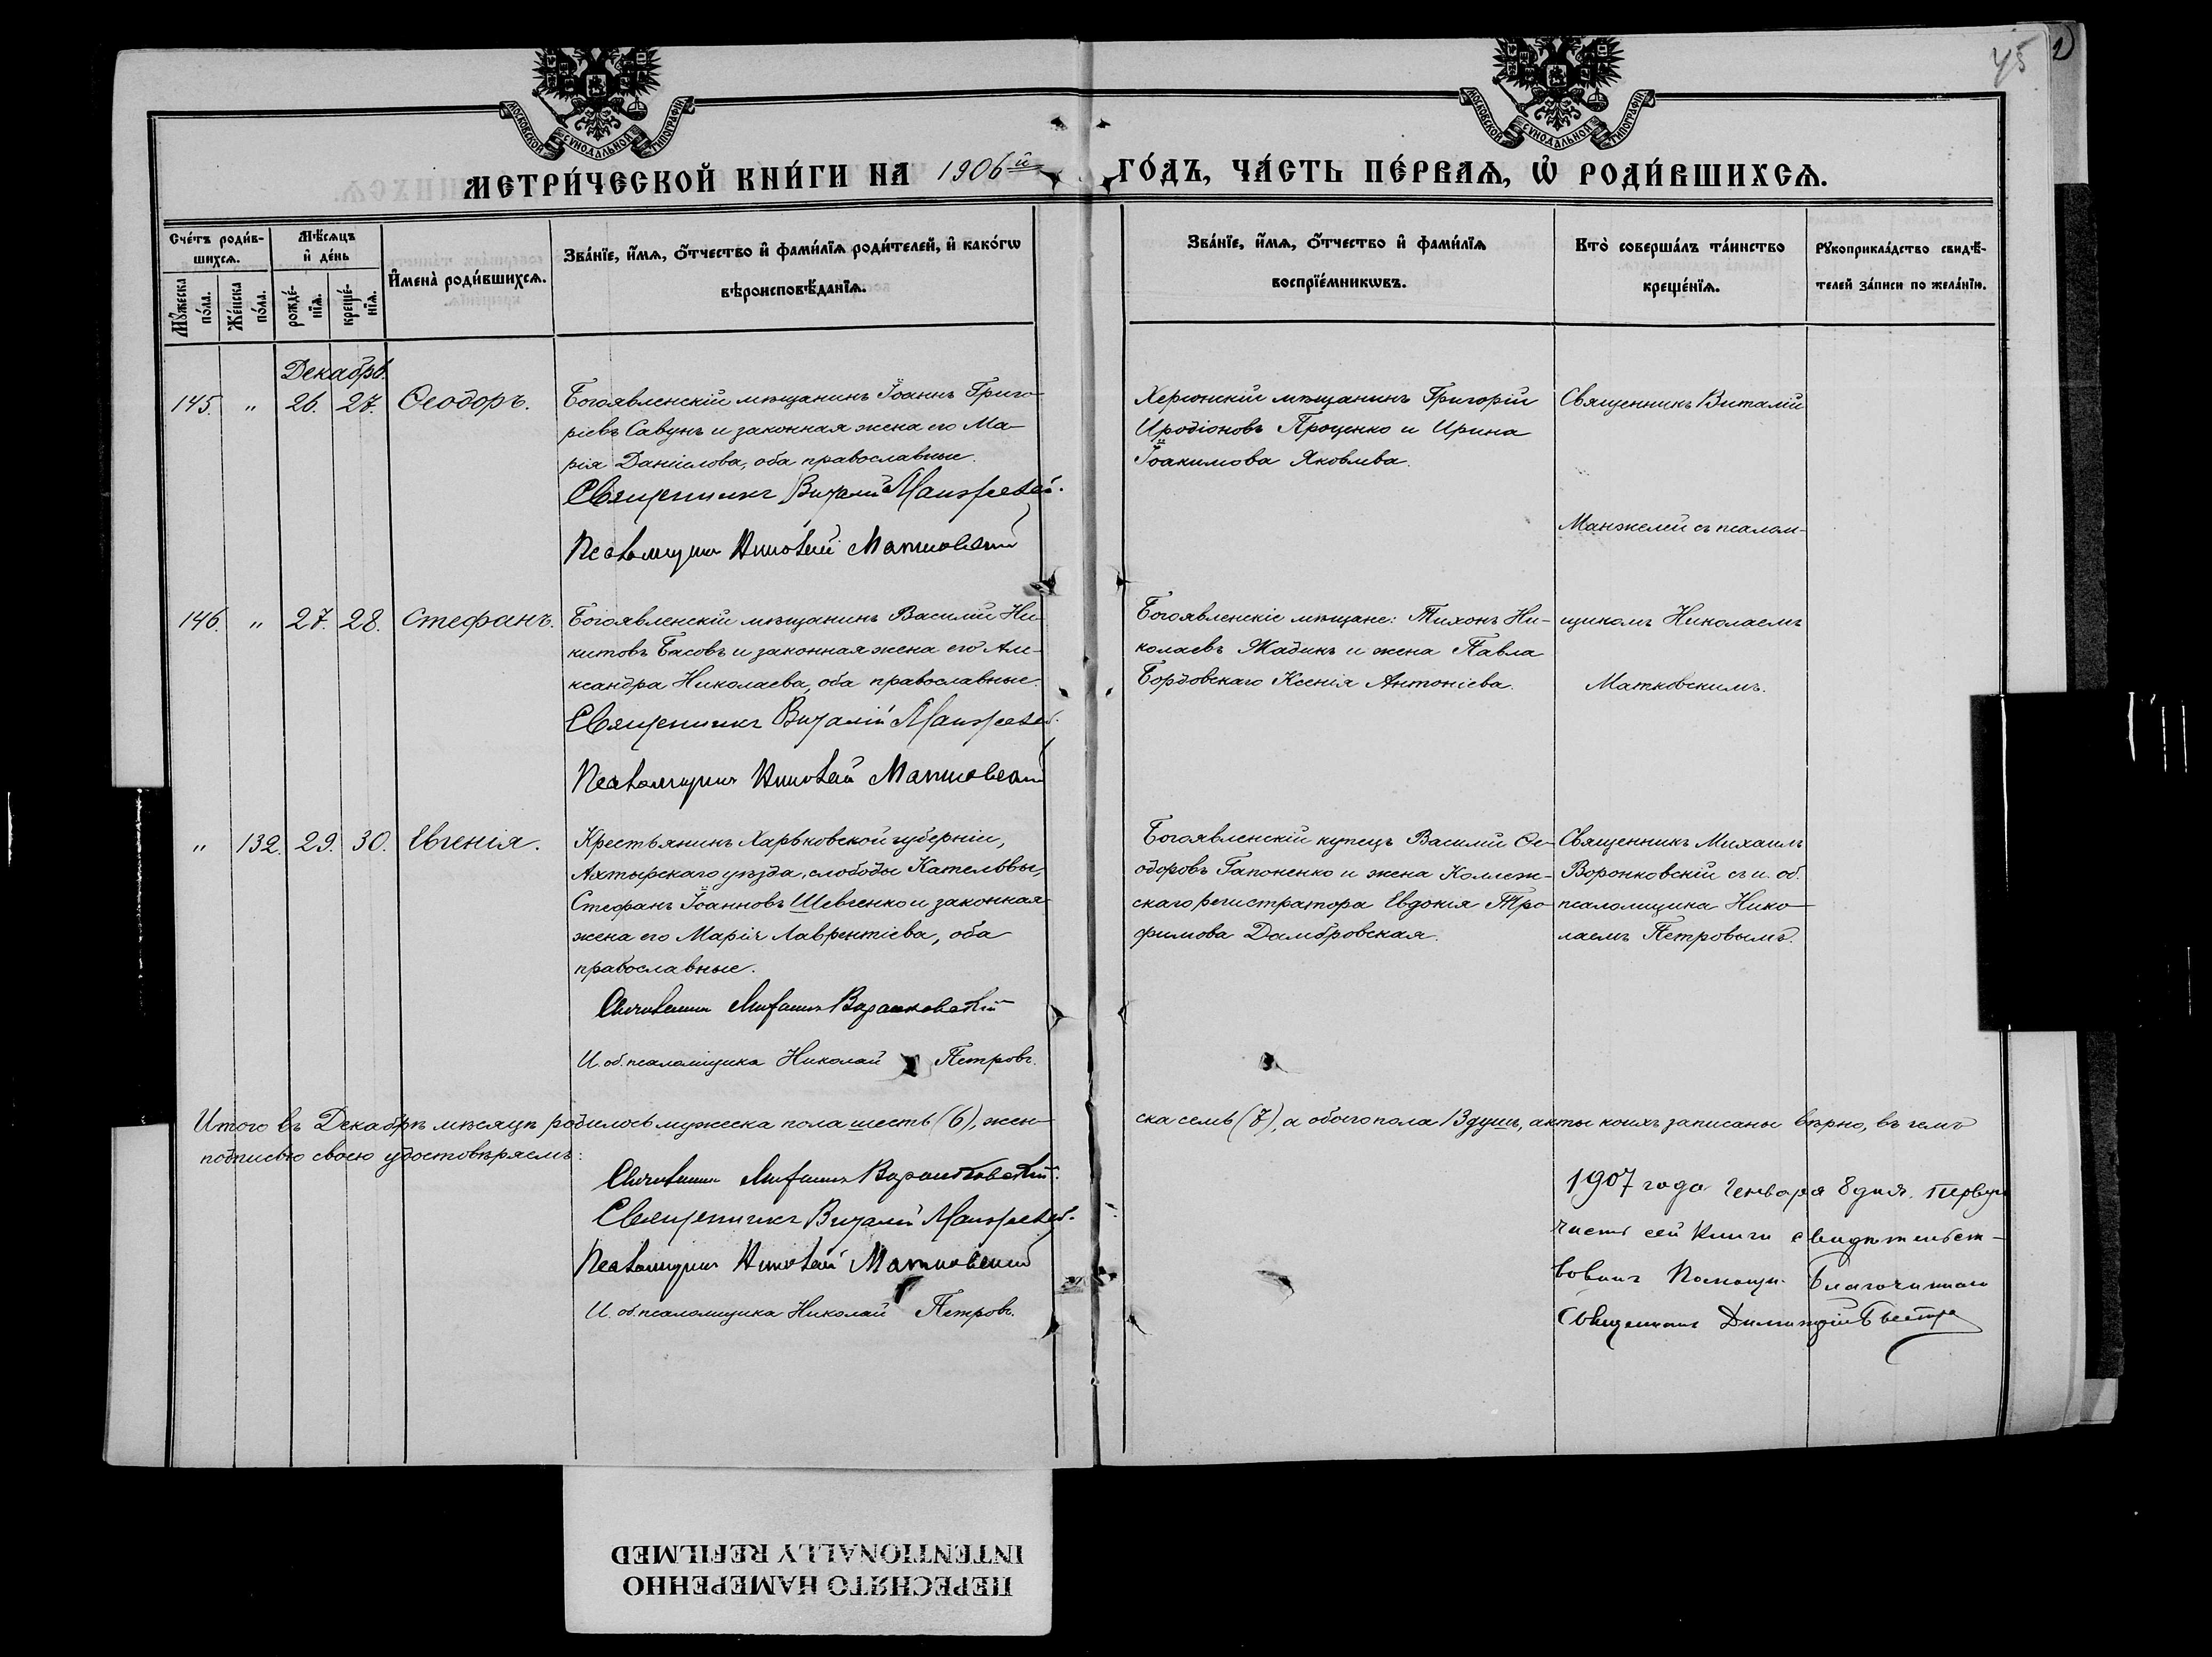 45
МОСКОВСКОЙ СѴНОДАЛЬНОЙ ТИПОГРАФІИ
МОСКОВСКОЙ СѴНОДАЛЬНОЙ ТИПОГРАФІИ
МЕТРИ́ЧЕСКОЙ КНИ́ГИ НА 1906й ГО́ДЪ, ЧА́СТЬ ПЕ́РВАѦ, Ѽ РОДИ́ВШИХСѦ.
Сче́тъ роди́в-
шихсѧ.
Мꙋ́жеска по́ла.
Же́нска по́ла.
Мѣ́сѧцъ
и҆ де́нь
рожде́-
нїѧ.
креще́-
нїѧ.
И҆мена̀ роди́вшихсѧ.
Зва́нїе, и҆́мѧ, ѻ҆́тчество и҆ фами́лїѧ роди́телей, и҆ како́гѡ
вѣроисповѣ́данїѧ.
Зва́нїе, и҆́мѧ, ѻ҆́тчество и҆ фами́лїѧ
воспрїе́мникѡвъ.
Кто̀ соверша́лъ та́инство
креще́нїѧ.
Рꙋкоприкла́дство свидѣ́-
телей за́писи по жела́нїю.
Декабрь.
145. " 26. 27. Ѳеодоръ.
Богоявленскій мѣщанинъ Іоаннъ Григо-
ріевъ Савунъ и законная жена его Ма-
рія Даніилова, оба православные.
Священникъ Виталій Манжелей.
Псаломщикъ Николай Матковскій
Херсонскій мѣщанинъ Григорій
Иродіоновъ Проценко и Ирина
Іоакимова Яковлева.
Священникъ Виталій
Манжелей съ псалом-
146. " 27. 28. Стефанъ.
Богоявленскій мѣщанинъ Василій Ни-
китовъ Басовъ и законная жена его Але-
ксандра Николаева, оба православные.
Священникъ Виталій Манжелей.
Псаломщикъ Николай Матковскій
Богоявленскіе мѣщане: Тихонъ Ни-
колаевъ Жадикъ и жена Павла
Бордовскаго Ксенія Антоніева.
щикомъ Николаемъ
Матковскимъ.
" 132. 29. 30. Евгенія.
Крестьянинъ Харьковской губерніи,
Ахтырскаго уѣзда, слободы Кательвы,
Стефанъ Іоанновъ Шевченко и законная
жена его Марія Лаврентіева, оба
православные.
Священникъ Михаилъ Воронковскій
И. об. псаломщика Николай Петровъ.
Богоявленскій купецъ Василій Ѳе-
одоровъ Гапоненко и жена Коллеж-
скаго регистратора Евдокія Тро-
фимова Дамбровская.
Священникъ Михаилъ
Воронковскій съ и. об.
псаломщика Нико-
лаемъ Петровымъ.
Итого въ Декабрѣ мѣсяцѣ родилось мужеска пола шесть (6), жен-
ска семь (7), а обоего пола 13 душъ, акты коихъ записаны вѣрно, въ чемъ
подписью своею удостовѣряемъ:
Священникъ Михаилъ Воронковскій.
Священникъ Виталій Манжелей.
Псаломщикъ Николай Матковскій
И. об. псаломщика Николай Петровъ.
1907 года Генваря 8 дня. Первую
часть сей Книги свидѣтельст-
вовалъ Помощн. Благочиннаго
Священникъ Димитрій
ПЕРЕСНЯТО НАМЕРЕННО
INTENTIONALLY REFILMED